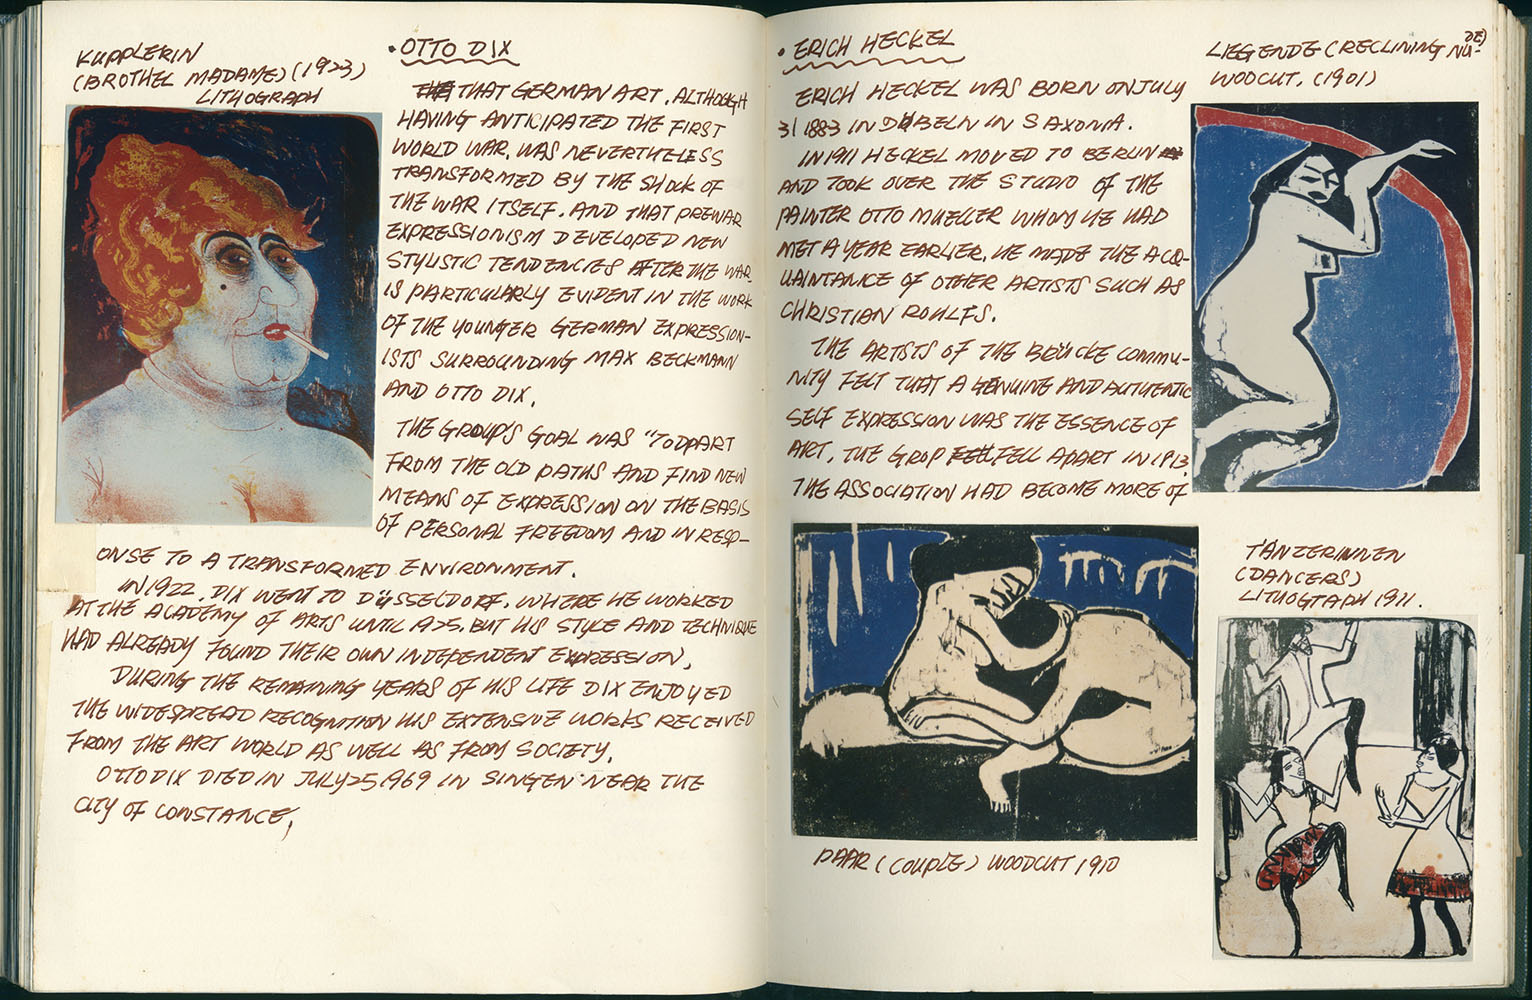 KUPPLERIN
(BROTHEL MADAME) (1923)
LITHOGRAPH
• OTTO DIX
THAT GERMAN ART, ALTHOUGH
HAVING ANTICIPATED THE FIRST
WORLD WAR, WAS NEVERTHELESS
TRANSFORMED BY THE SHOCK OF
THE WAR ITSELF. AND THAT PREWAR
EXPRESSIONISM DEVELOPED NEW
STYLISTIC TENDENCIES AFTER THE WAR
IS PARTICULARLY EVIDENT IN THE WORK
OF THE YOUNGER GERMAN EXPRESSION-
ISTS SURROUNDING MAX BECKMANN
AND OTTO DIX.
THE GROUP'S GOAL WAS "TO DPART
FROM THE OLD PATHS AND FIND NEW
MEANS OF EXPRESSION ON THE BASIS
OF PERSONAL FREEDOM AND IN RESP-
ONSE TO A TRANSFORMED ENVIRONMENT.
IN 1922, DIX WENT TO DÜSSELDORF, WHERE HE WORKED
AT THE ACADEMY OF ARTS UNTIL 1925, BUT HIS STYLE AND TECHNIQUE
HAD ALREADY FOUND THEIR OWN INDEPENDENT EXPRESSION.
DURING THE REMAINING YEARS OF HIS LIFE DIX ENJOYED
THE WIDESPREAD RECOGNITION HIS EXTENSIVE WORKS RECEIVED
FROM THE ART WORLD AS WELL AS FROM SOCIETY.
OTTO DIX DIED IN JULY 25, 1969 IN SINGEN NEAR THE
CITY OF CONSTANCE.
• ERICH HECKEL
ERICH HECKEL WAS BORN ON JULY
31 1883 IN DÖBELN IN SAXONIA.
IN 1911 HECKEL MOVED TO BERLIN
AND TOOK OVER THE STUDIO OF THE
PAINTER OTTO MUELLER WHOM HE HAD
MET A YEAR EARLIER. HE MADE THE ACQ-
UAINTANCE OF OTHER ARTISTS SUCH AS
CHRISTIAN ROHLFS.
THE ARTISTS OF THE BRÜCKE COMMU-
NITY FELT THAT A GENUINE AND AUTHENTIC
SELF EXPRESSION WAS THE ESSENCE OF
ART. THE GROP FELL APART IN 1913.
THE ASSOCIATION HAD BECOME MORE OF
LIEGENDE (RECLINING NU-
DE)
WOODCUT. (1901)
PAAR (COUPLE) WOODCUT 1910
TÄNZERINNEN
(DANCERS)
LITHOGTAPH 1911.